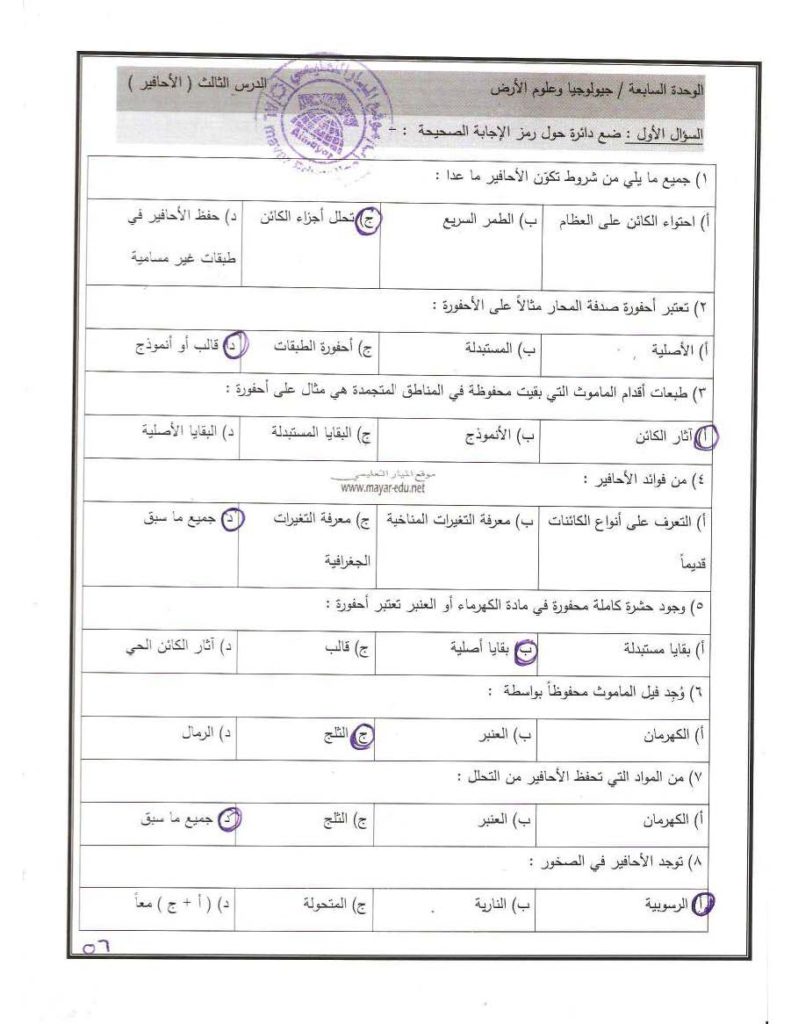 الوحدة السابعة / جيولوجيا وعلوم الأرض الدرس الثالث ( الأحافير )
السؤال الأول : ضع دائرة حول رمز الإجابة الصحيحة : -
١) جميع ما يلي من شروط تكوّن الأحافير ما عدا :
أ) احتواء الكائن على العظام ب) الطمر السريع ج) تحلل أجزاء الكائن د) حفظ الأحافير في
طبقات غير مسامية
٢) تعتبر أحفورة صدفة المحار مثالاً على الأحفورة :
أ) الأصلية ب) المستبدلة ج) أحفورة الطبقات د) قالب أو أنموذج
٣) طبعات أقدام الماموث التي بقيت محفوظة في المناطق المتجمدة هي مثال على أحفورة :
أ) آثار الكائن ب) الأنموذج ج) البقايا المستبدلة د) البقايا الأصلية
موقع الميار التعليمي
www.mayar-edu.net
٤) من فوائد الأحافير :
أ) التعرف على أنواع الكائنات ب) معرفة التغيرات المناخية ج) معرفة التغيرات د) جميع ما سبق
قديماً الجغرافية
٥) وجود حشرة كاملة محفورة في مادة الكهرماء أو العنبر تعتبر أحفورة :
أ) بقايا مستبدلة ب) بقايا أصلية ج) قالب د) آثار الكائن الحي
٦) وُجِد فيل الماموث محفوظاً بواسطة :
أ) الكهرمان ب) العنبر ج) الثلج د) الرمال
٧) من المواد التي تحفظ الأحافير من التحلل :
أ) الكهرمان ب) العنبر ج) الثلج د) جميع ما سبق
٨) توجد الأحافير في الصخور :
أ) الرسوبية ب) النارية ج) المتحولة د) ( أ + ج ) معاً
٥٦